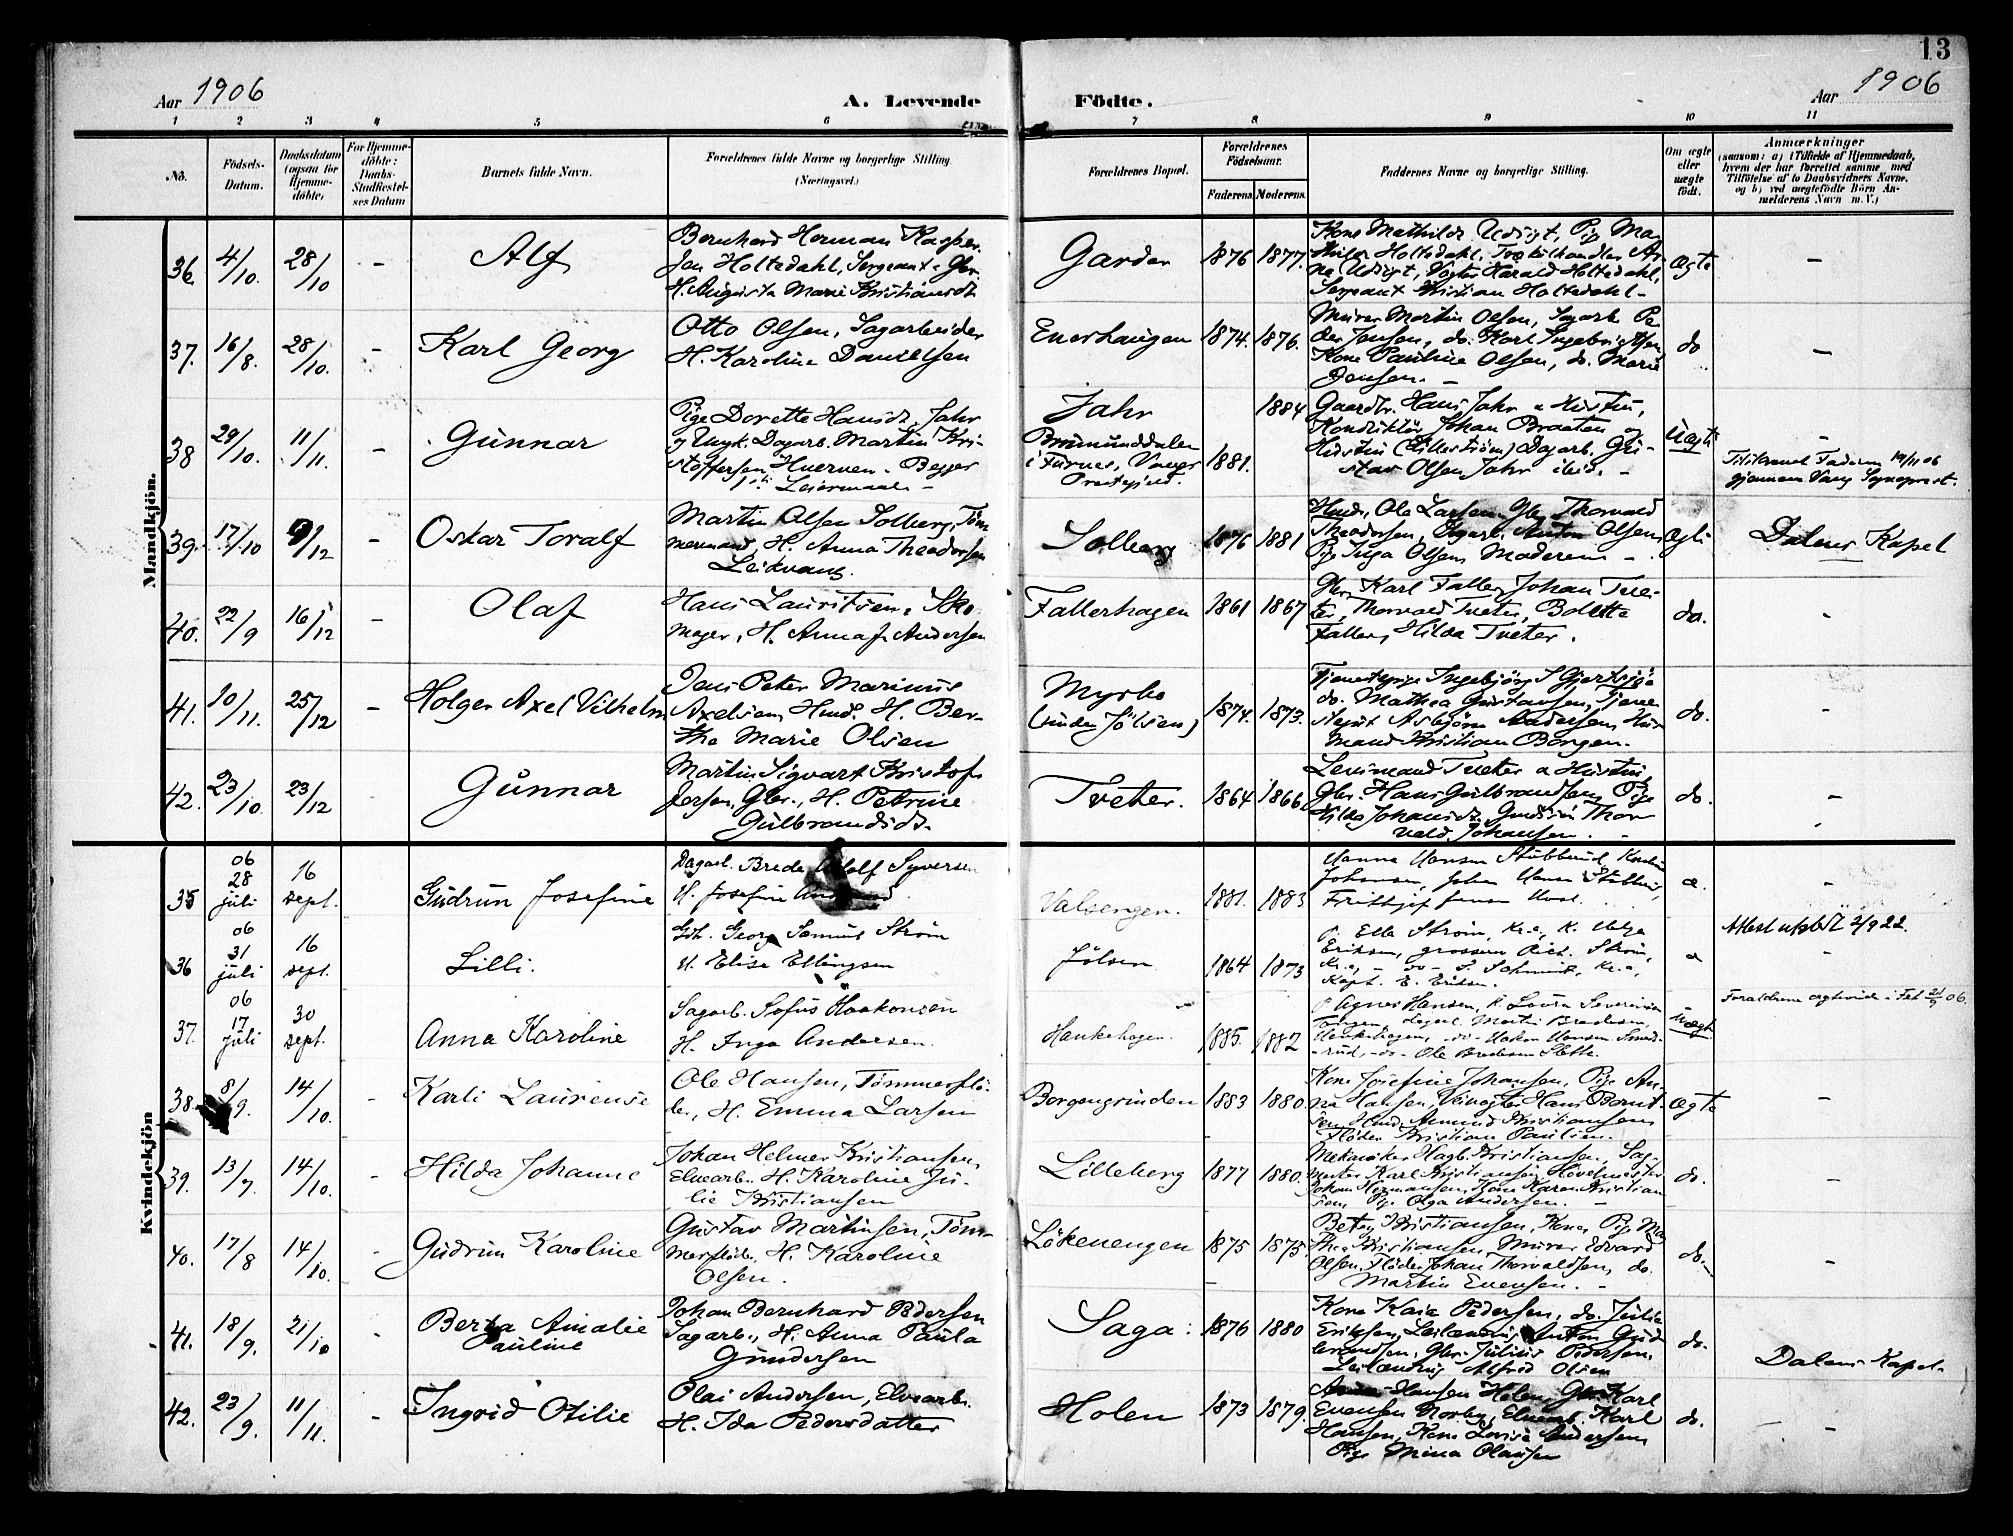 13
Aar 1906
A. Levende Födte.
Aar 1906
1 2 3 4 5 6 7 8 9 10 11
No.
Födsels-
Datum.
Daabsdatum
(ogsaa for
Hjemme-
döbte)
For Hjemme-
döbte:
Daabs-
Stadfæstel-
ses Datum
Barnets fulde Navn.
Forældrenes fulde Navne og borgerlige Stilling.
(Næringsvei.)
Forældrenes Bopæl.
Forældrenes
Födselsaar.
Faderens Moderens
Faddernes Navne og borgerlige Stilling.
Om ægte
eller
uægte
födt.
Anmærkninger
(saasom: a) i Tilfælde af Hjemmedaab,
hvem der har forrettet samme, med
Tilföielse af to Daabsvidners Navne,
og b) ved uægtefödte Börn An-
melderens Navn m.V.)
Mandkjön.
36. 4/10. 28/10 - Alf
Bernhard Herman Kasper
sen Holtedahl, Sergeant
H. Augusta Marie Kristiansdt
Garder 1876 1877.
Kone Mathilde Udigt, Pige Ma-
thilde Holtedahl, Trælasthandler
Udigt, Harald Holtedahl,
Sergeant Kristian Holtedahl -
ægte -
37. 16/8. 28/10. - Karl Georg
Otto Olsen, Sagarbeider
H. Karoline Danielsen
Enerhaugen 1874. 1876.
Murer Martin Olsen, Sagarb. Pe-
der Jensen, do. Karl Ingebrigtsen,
Kone Pauline Olsen, do. Marie
Jensen. -
do -
38 29/10. 11/11. - Gunnar
Pige Dorette Hansdt, Jahr
og Ungk. Dagarb. Martin Kri-
stoffersen - Begges
1ste Leiermaal -
Jahr
Brumunddalen
i Furnes, Vangs
Præstegjeld.
1881. 1884
Gaardbr. Hans Jahr & Hustru,
Konduktör Johan Braaten og
Hustru (Lilleström) Dagarb. Gu-
stav Olsen Jahr ibid. -
Uægte -
Tilskrevet Faderen 19/11 06
gjennem Vang Sogneprest.
39. 17/10 9/12 - Oskar Toralf
Martin Olsen Solberg, Töm
mermand, H. Anna Theodorsen
Leikvang.
Solberg 1876 1881
Husm. Ole Larsen, Gbr. Thorvald
Theodorsen, Dagarb. Anton Olsen,
Pige Inga Olsen, Moderen -
Ægte
Dalens Kapel
40. 22/9 16/12 - Olaf
Hans Lauritsen, Sko
mager, H. Anna J. Andersen
Fallerhagen 1861 1867
Gbr. Karl Faller, Johan Tve-
ter, Thorvald Tveter, Bolette
Faller, Hilda Tveter.
do. -
41. 10/11. 25/12 - Holger Axel Vilhelm
Jens Peter Marinus
Axelsen, Husm. H. Ber-
the Marie Olsen
Myrbo
(under Jölsen)
1874. 1873.
Tjenestepige Ingebjörg S. Gjertsjö
do. Mathea Gustavsen, Tjene
stegut Asbjörn Andersen, Hus
mand Kristian Borgen.
do. -
42. 23/10 23/12 - Gunnar
Martin Sigvart Kristof-
fersen, Gbr., H. Petrine
Gulbrandsdt.
Tveter. 1864 1866
Lensmand Tveter & Hustru,
Gbr. Hans Gulbrandsen, Pige
Hilda Johansdt, Gudrun Thor
vald Johansen. -
do. -
Kvindekjön
35 06 28 juli 16 sept. Gudrun Josefine
Dagarb. Brede Adolf Syversen
H. Josefine
Valsengen. 1881. 1883
Hanna Hansen Stubberud,
Johansen, Johan Hansen Stubberud,
Fritthjof
æ. -
36 06 31 juli 16 sept. Lilli.
Georg Samuel Ström
H. Elise Ellingsen
Jölsen 1864 1873
p. Elle Ström, Kr.a, K. Helga
Eriksen, grosserer Rich. Ström,
Kr.a, - do - S. Schmidt, Kr.a,
Kapt. E. Eriksen.
æ -
Attest utstedt 2/9 22.
37. 06 17 juli 30 sept. Anna Karoline
Sagarb. Sofus Haakonsen
H. Inga Andersen.
Haukehagen. 1885. 1882
p. Agnes Hansen, K. Laura Severinsen
Dagarb. Martin Bredesen,
Haukehagen, - do - Hakon Hansen
-rud, - do - Ole Bredesen Slette.
Uægte
Forældrene ægteviede i Fet 21/9 06.
38. 8/9. 14/10. - Karli Laurense
Ole Hansen, Tömmerflö-
der, H. Emma Larsen
Borgengrinden 1883 1880
Kone Josefine Johansen, Pige An-
na Hansen, Veivogter Hans Bernt-
sen, Husm. Amund Kristiansen,
Flöder Kristian Paulsen.
ægte -
39. 13/7. 14/10. - Hilda Johanne
Johan Helmer Kristiansen,
Elvearb. H. Karoline Ju-
lie Kristiansen
Lilleberg 1877 1880.
Mekaniker Hagb. Kristiansen, Sag-
mester Karl Kristiansen, Hövelmester
Johan Hermansen, Kone Karen Kristian
sen, Pige Olga Andersen. -
do. -
40. 17/8 14/10. - Gudrun Karoline
Gustav Martinsen, Töm-
merflöder, H. Karoline
Olsen.
Lökenengen 1875 1875.
Betsy Kristiansen, Kone, Pige Ma
thea Kristiansen, Murer Edvard
Olsen, Flöder Johan Thorvaldsen, do.
Martin Evensen. -
do. -
41. 18/9. 21/10 - Berta Amalie
Pauline
Johan Bernhard Pedersen
Sagarb., H. Anna Paula
Gundersen
Saga 1876 1880
Kone Kaia Pedersen, do. Julie
Eriksen, Leilænding Anton Gud
brandsen, Gbr. Julius Pedersen,
Leilænding Alfred Olsen
do.
Dalens Kapel.
42. 23/9. 11/11. - Ingrid Otilie
Olai Andersen, Elvearb.
H. Ida Pedersdatter
Holen 1873 1879.
Hansen Holen, Gbr. Karl
Evensen Norby, Elvearb. Karl
Hansen, Kone Lovise Andersen,
Pige Mina Olausen
do. -